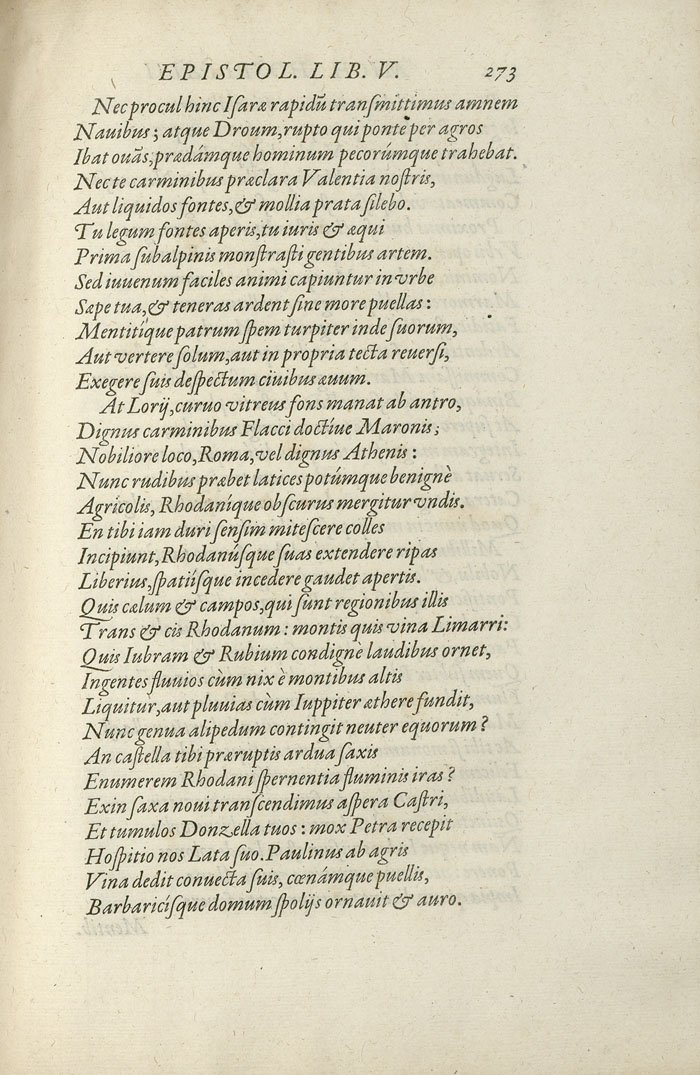 EPISTOL. LIB. V. 273
Nec procul hinc Iſaræ rapidū tranſmittimus amnem
Nauibus; atque Droum, rupto qui ponte per agros
Ibat ouās, prædámque hominum pecorúmque trahebat.
Nec te carminibus præclara Valentia noſtris,
Aut liquidos fontes, & mollia prata ſilebo.
Tu legum fontes aperis, tu iuris & æqui
Prima ſubalpinis monſtraſti gentibus artem.
Sed iuuenum faciles animi capiuntur in vrbe
Sæpe tua, & teneras ardent ſine more puellas:
Mentitíque patrum ſpem turpiter inde ſuorum,
Aut vertere ſolum, aut in propria tecta reuerſi,
Exegere ſuis deſpectum ciuibus æuum.
At Lorij, curuo vitreus fons manat ab antro,
Dignus carminibus Flacci doctíue Maronis;
Nobiliore loco, Roma, vel dignus Athenis:
Nunc rudibus præbet latices potúmque benignè
Agricolis, Rhodaníque obſcurus mergitur vndis.
En tibi iam duri ſenſim miteſcere colles
Incipiunt, Rhodanúſque ſuas extendere ripas
Liberius, ſpatiíſque incedere gaudet apertis.
Quis cælum & campos, qui ſunt regionibus illis
Trans & cis Rhodanum: montis quis vina Limarri:
Quis Iubram & Rubium condignè laudibus ornet,
Ingentes fluuios cùm nix è montibus altis
Liquitur, aut pluuias cùm Iuppiter æthere fundit,
Nunc genua alipedum contingit neuter equorum?
An caſtella tibi præruptis ardua ſaxis
Enumerem Rhodani ſpernentia fluminis iras?
Exin ſaxa noui tranſcendimus aſpera Caſtri,
Et tumulos Donzella tuos: mox Petra recepit
Hoſpitio nos Lata ſuo. Paulinus ab agris
Vina dedit conuecta ſuis, cœnámque puellis,
Barbaricíſque domum ſpolijs ornauit & auro.